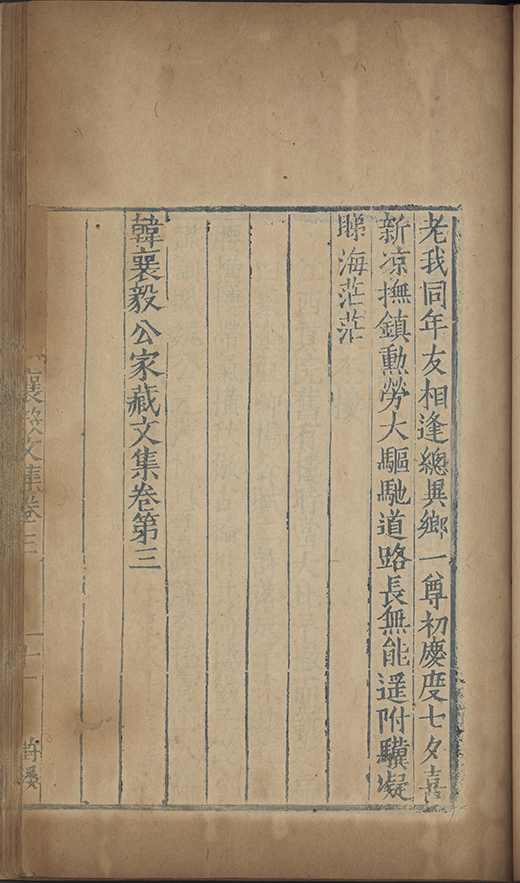 老我同年友相逢總異鄉一尊初慶度七夕喜
新凉撫鎮勲勞大驅馳道路長無能遥附驥凝
睇海茫茫
韓襄毅公家藏文集卷第三
襄毅文集卷三